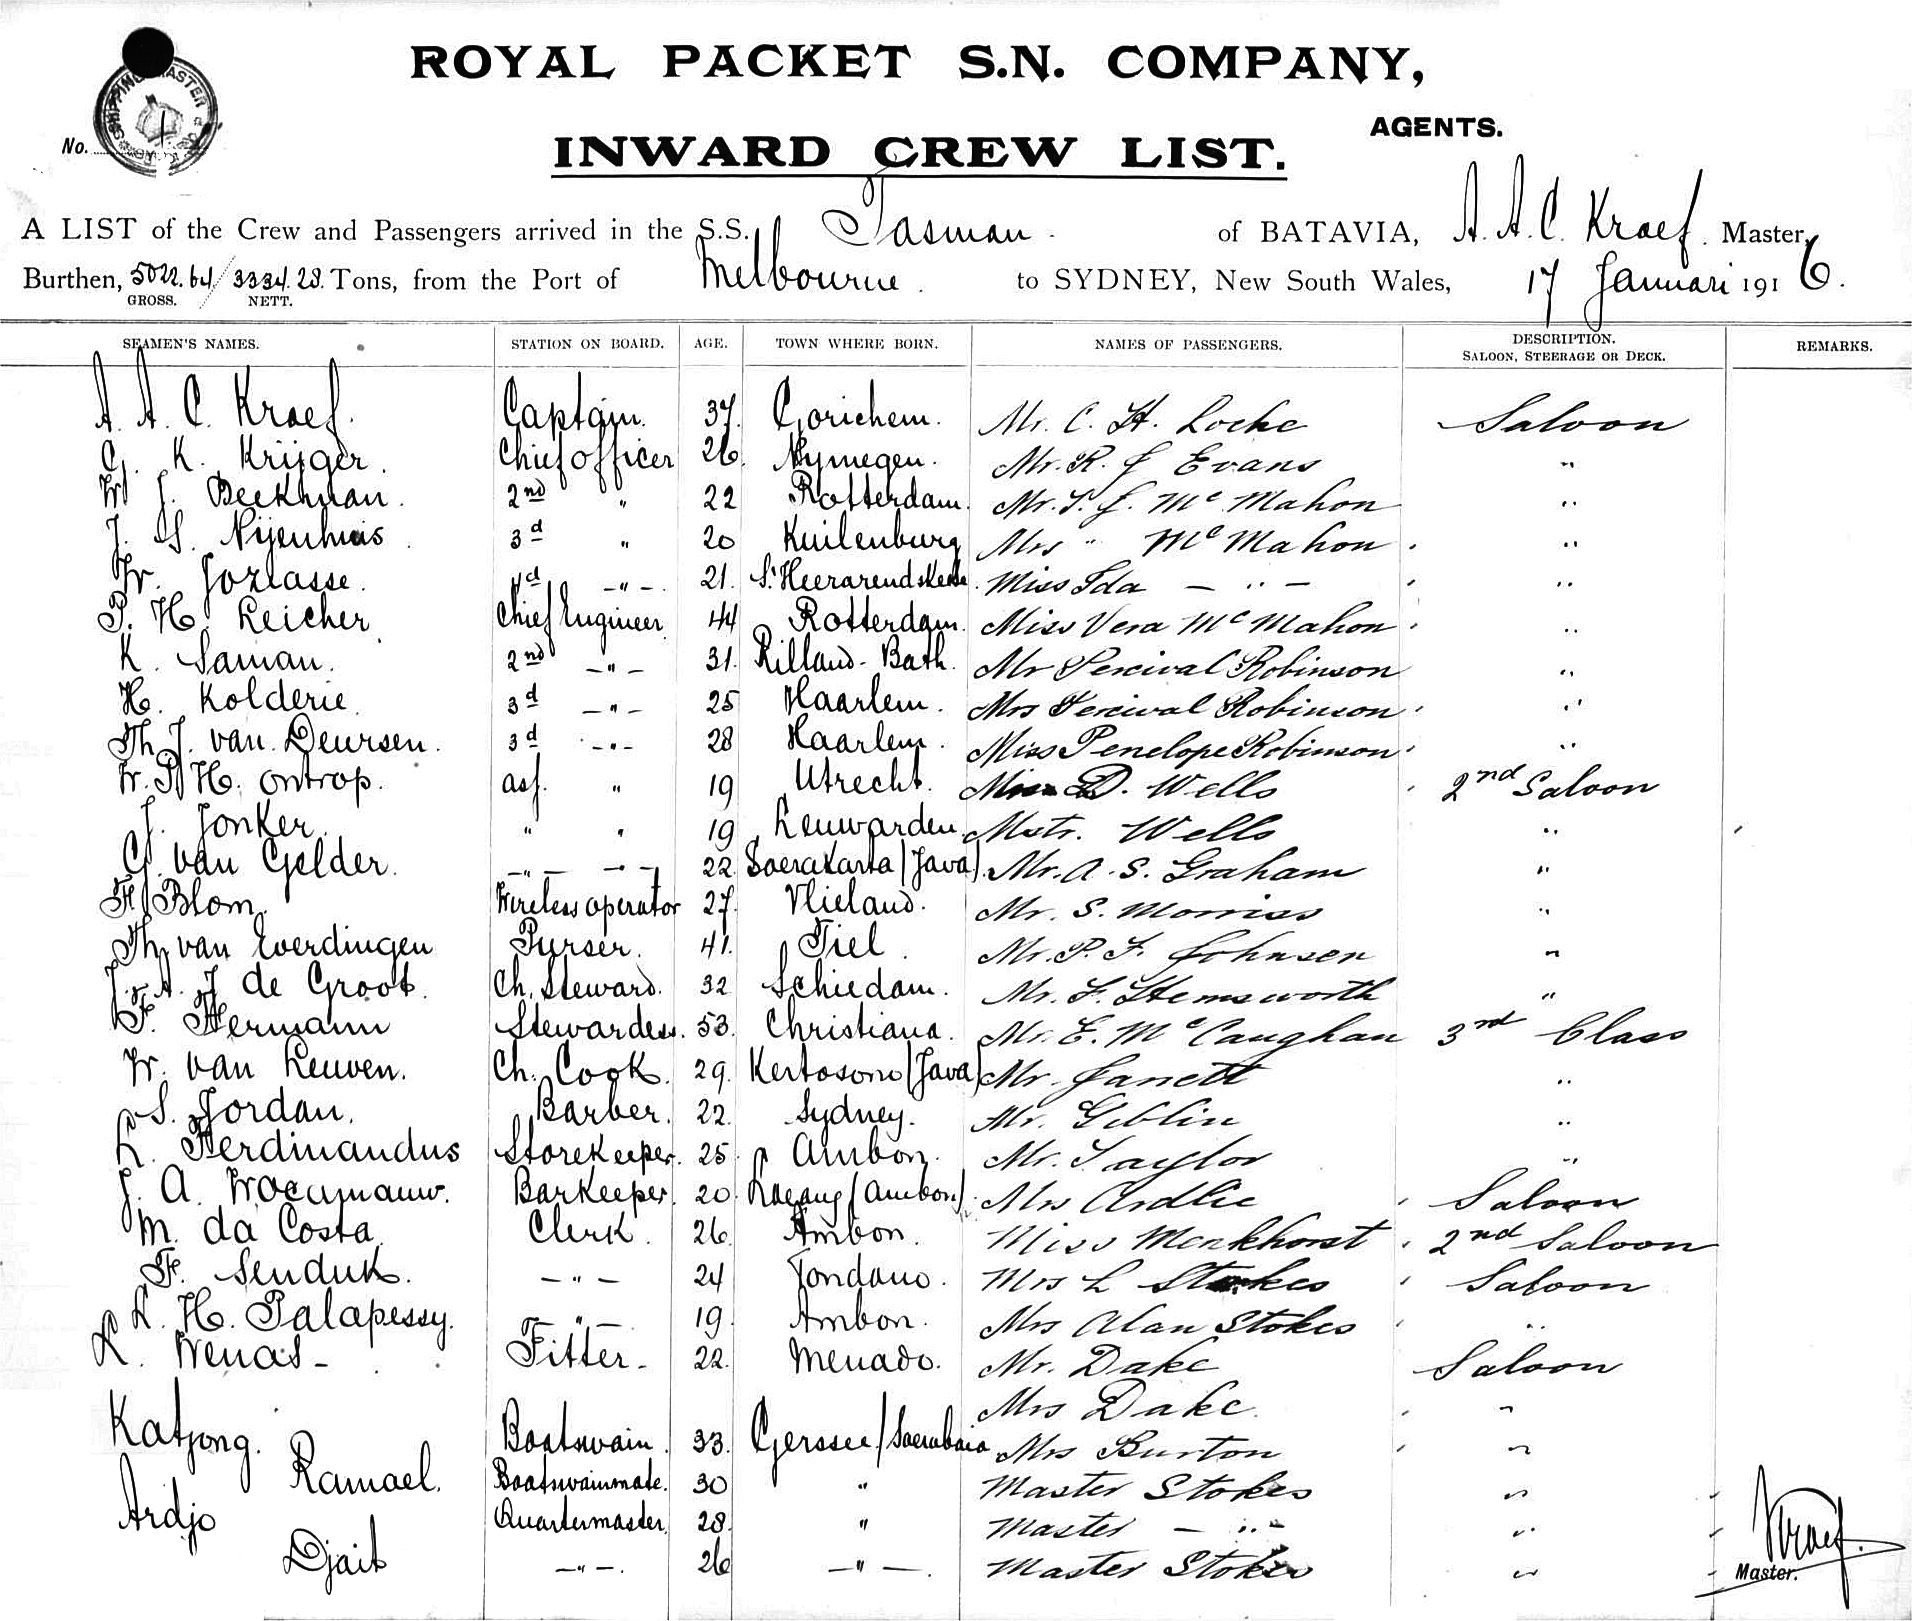 ROYAL PACKET S.N. COMPANY,
AGENTS.
No.
INWARD CREW LIST.
A LIST of the Crew and Passengers arrived in the S.S. Tasman. of BATAVIA, A. A. C. Kraef. Master,
Burthen, 5022.64/3334.28. Tons, from the Port of Melbourne. to SYDNEY, New South Wales, 17 Januari 1916.
GROSS. NETT.
SEAMEN'S NAMES. STATION ON BOARD. AGE. TOWN WHERE BORN. NAMES OF PASSENGERS. DESCRIPTION. SALOON, STEERAGE OR DECK. REMARKS.
A. A. C. Kraef. Captain. 37. Gorichem. Mr. C. H. Locke Saloon
G. K. Krijger. Chief officer 26. Nymegen. Mr. R. J Evans "
W. J. Beekman. 2nd " 22 Rotterdam. Mr. T. J. McMahon "
J. S. Nijenhuis. 3d " 20 Kuilenburg Mrs " McMahon. "
W. Joziasse. 4d -"- 21. Miss Ida - " - "
P. H. Reicher Chief Engineer 44 Rotterdam. Miss Vera McMahon "
K. Saman. 2nd -"- 31. Rilland-Bath. Mr Percival Robinson "
H. Kolderie 3d -"- 25 Haarlem. Mrs Percival Robinson "
Th. J. van Deursen. 3d -"- 28 Haarlem. Miss Penelope Robinson "
W. P. H. Ontrop. ass. " 19 Utrecht. Miss D. Wells 2nd Saloon
J. Jonker. " " 19 Leuwarden. Mstr. Wells "
G. van Gelder. -"- -"- 22 Soerakarta (Java). Mr. A. S. Graham "
F. Blom. Wireless operator 27. Vlieland. Mr. S. Morriss "
Th. van Everdingen Purser. 41. Tiel Mr. P. F. Johnsen "
J. A. J de Groot. Ch. Steward. 32 Schiedam. Mr. F. Hemsworth "
F. Hermann Stewardess. 53. Christiana. Mr. E. McCaughan 3rd Class
W. van Leuven. Ch. Cook. 29. Kertosono (Java) Mr. Janett "
S. Jordan. Barber. 22. Sydney. Mr. Giblin "
L. Ferdinandus Storekeeper. 25. Ambon. Mr. Taylor "
J. A. Barkeeper. 20. (Ambon). Mrs Ardlie Saloon
M. da Costa. Clerk. 26. Ambon. Miss Menkhorst. 2nd Saloon
F. Senduk. -"- 24 Tondano. Mrs L Stokes Saloon
L. H. Palapessy. -"- 19. Ambon. Mrs Alan Stokes "
L. Wenas- Fitter- 22. Menado. Mr. Dake Saloon
Mrs Dake. "
Katjong. Boatswain. 33. Gerssee/Soerabaia Mrs Burton "
Ramael. Boatswainmate. 30 " Master Stokes "
Ardjo Quartermaster. 28. " Master - " - "
Djait -"-. 26 -"-. Master Stokes "
Kraef.
Master.